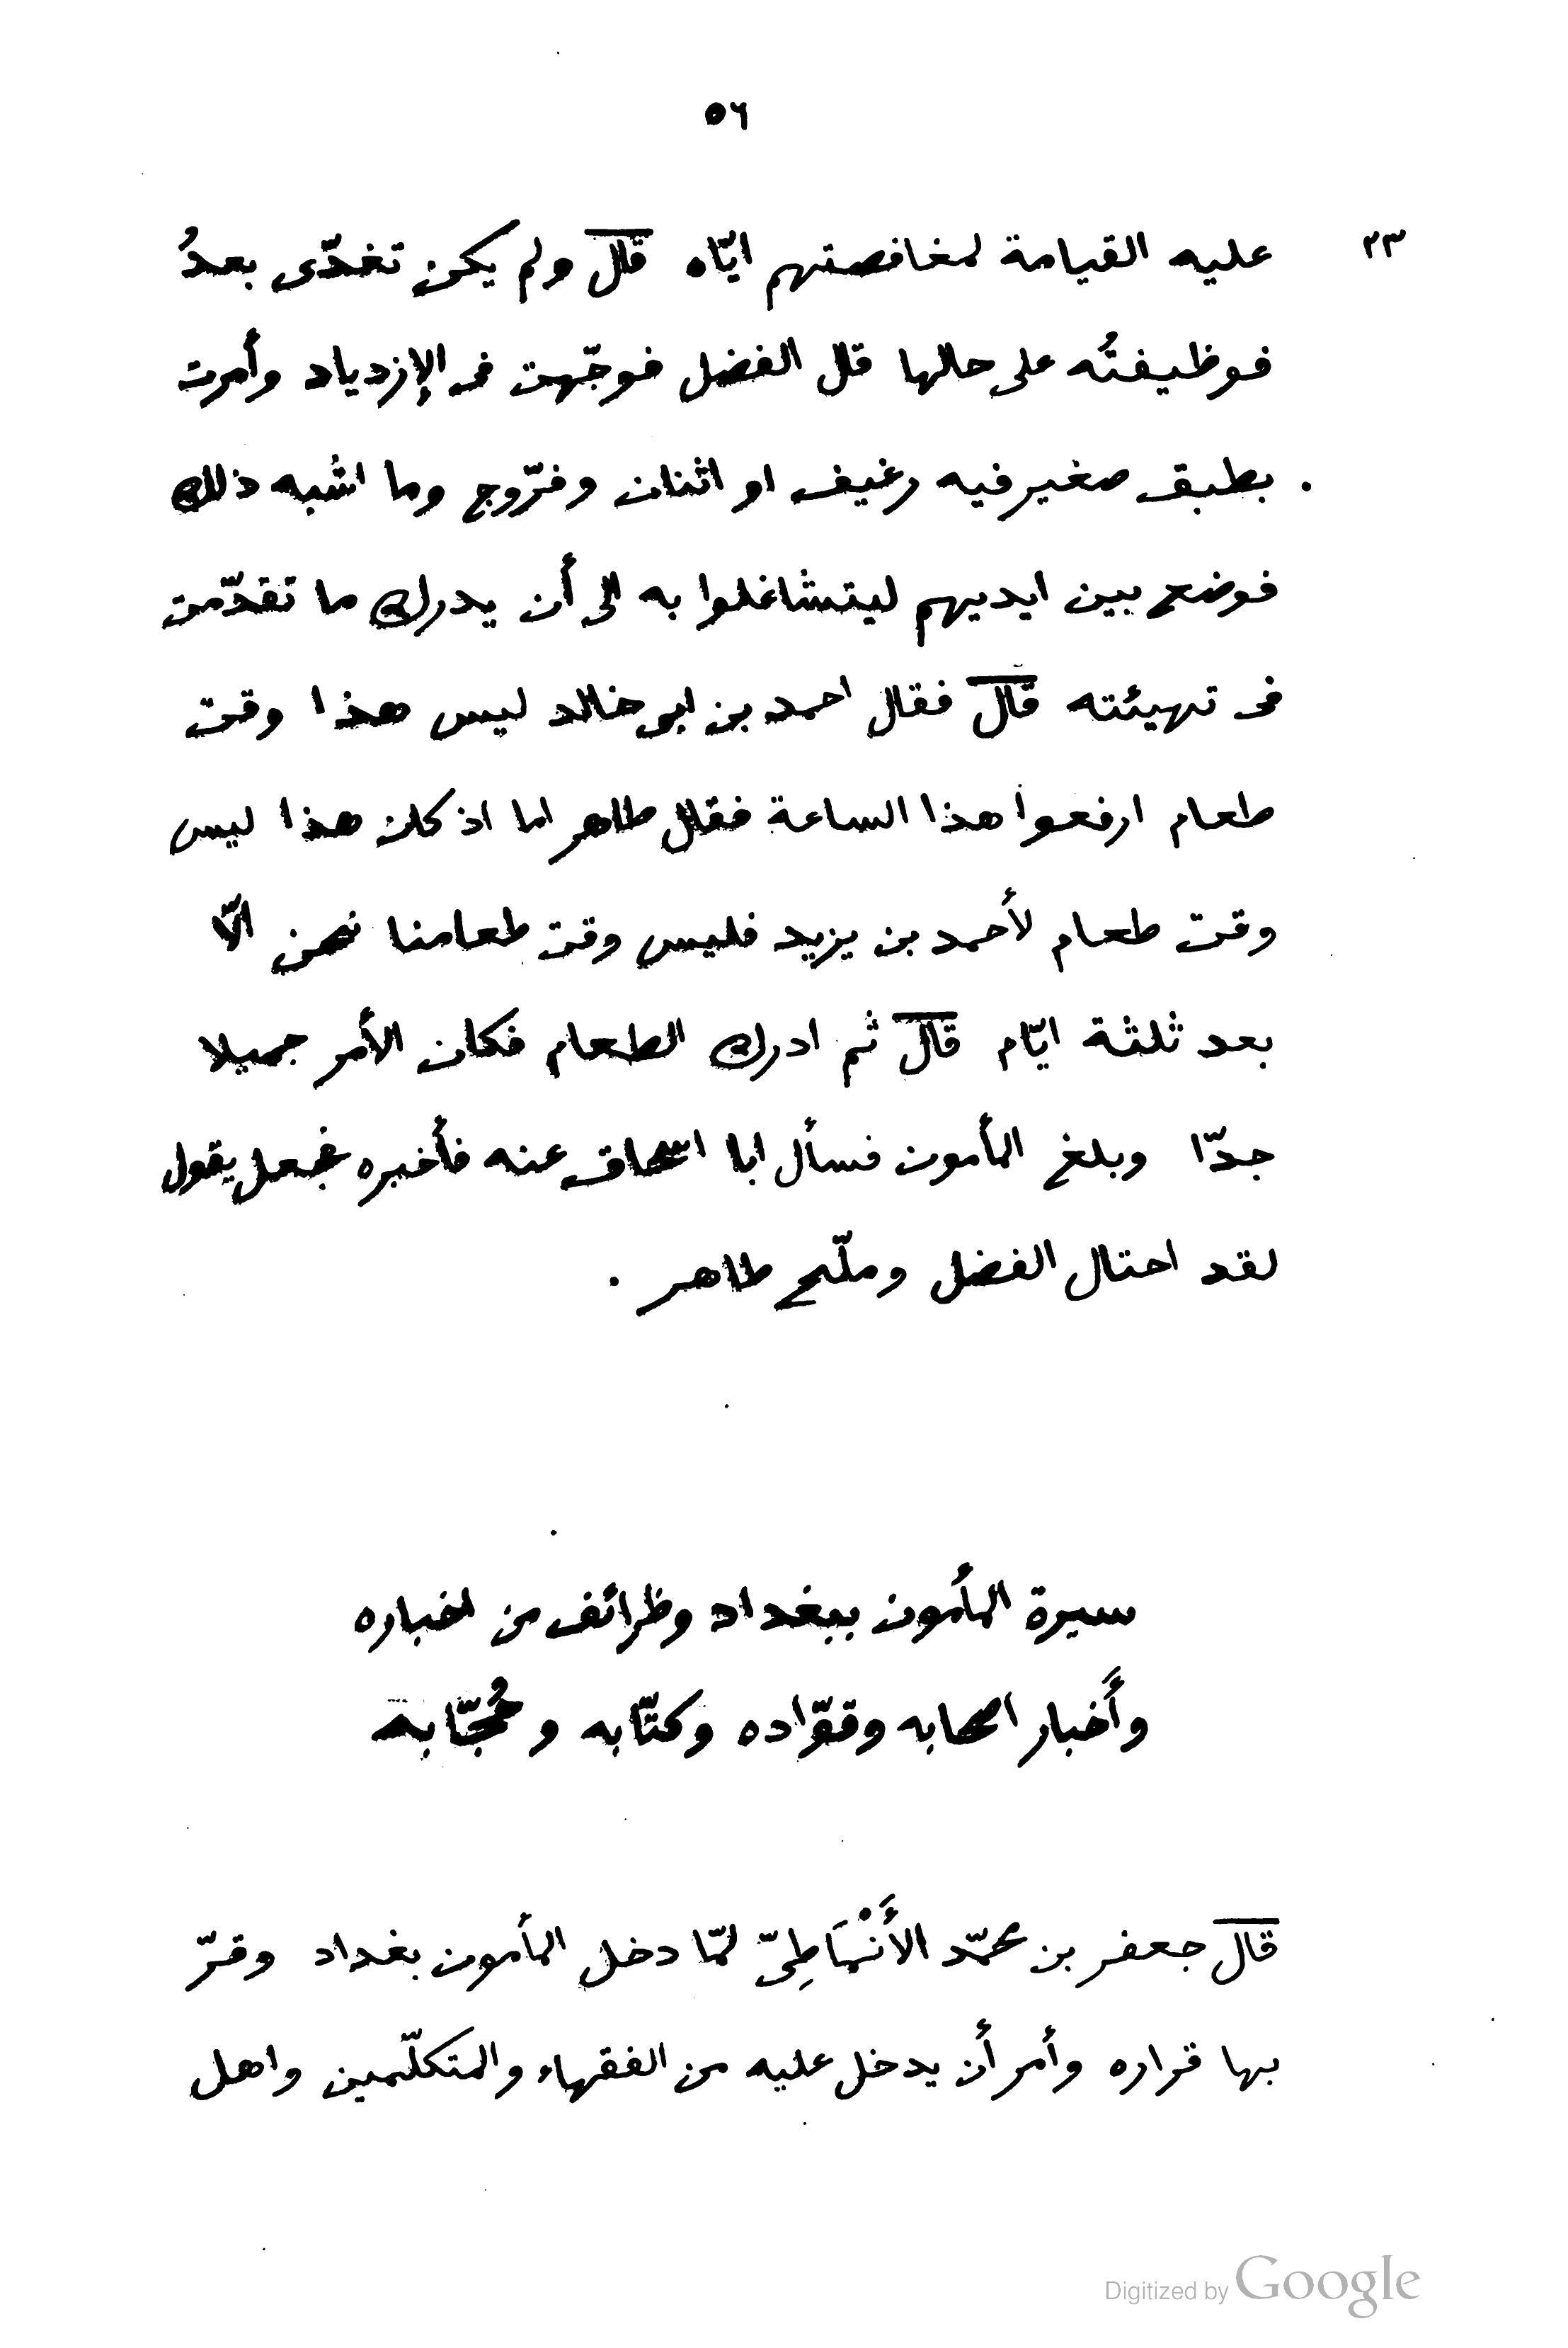 ٥٦
٢٣ عليه القيامة لمغافصتهم ايّاه قال ولم يكن تغدّى بعدُ
فوظيفتُه على حالها قال الفضل فوجّهت فى الإزدياد وأمرت
بطبق صغير فيه رغيف او اثنان وفرّوج وما اشبه ذلك
فوضع بين ايديهم ليتشاغلوا به الى أن يدرك ما تقدّمت
فى تهيئته قال فقال احمد بن ابى خالد ليس هذا وقت
طعام ارفعوا هذا الساعة فقال طاهر اما اذ كان هذا ليس
وقت طعام لأحمد بن يزيد فليس وقت طعامنا نحن الّا
بعد ثلثة ايّام قال ثم ادرك الطعام فكان الأمر جميلا
جدّا وبلغ المأمون فسأل ابا اسحاق عنه فأخبره فجعل يقول
لقد احتال الفضل وملّح طاهر .
سيرة المأمون ببغداد وظرائف من اخباره
وأَخبار اصحابه وقوّاده وكتّابه وحُجّابه
قال جعفر بن محمّد الأَنْمَاطِىّ لمّا دخل المأمون بغداد وقرّ
بها قراره وأمر أن يدخل عليه من الفقهاء والمتكلّمين واهل
Digitized by Google